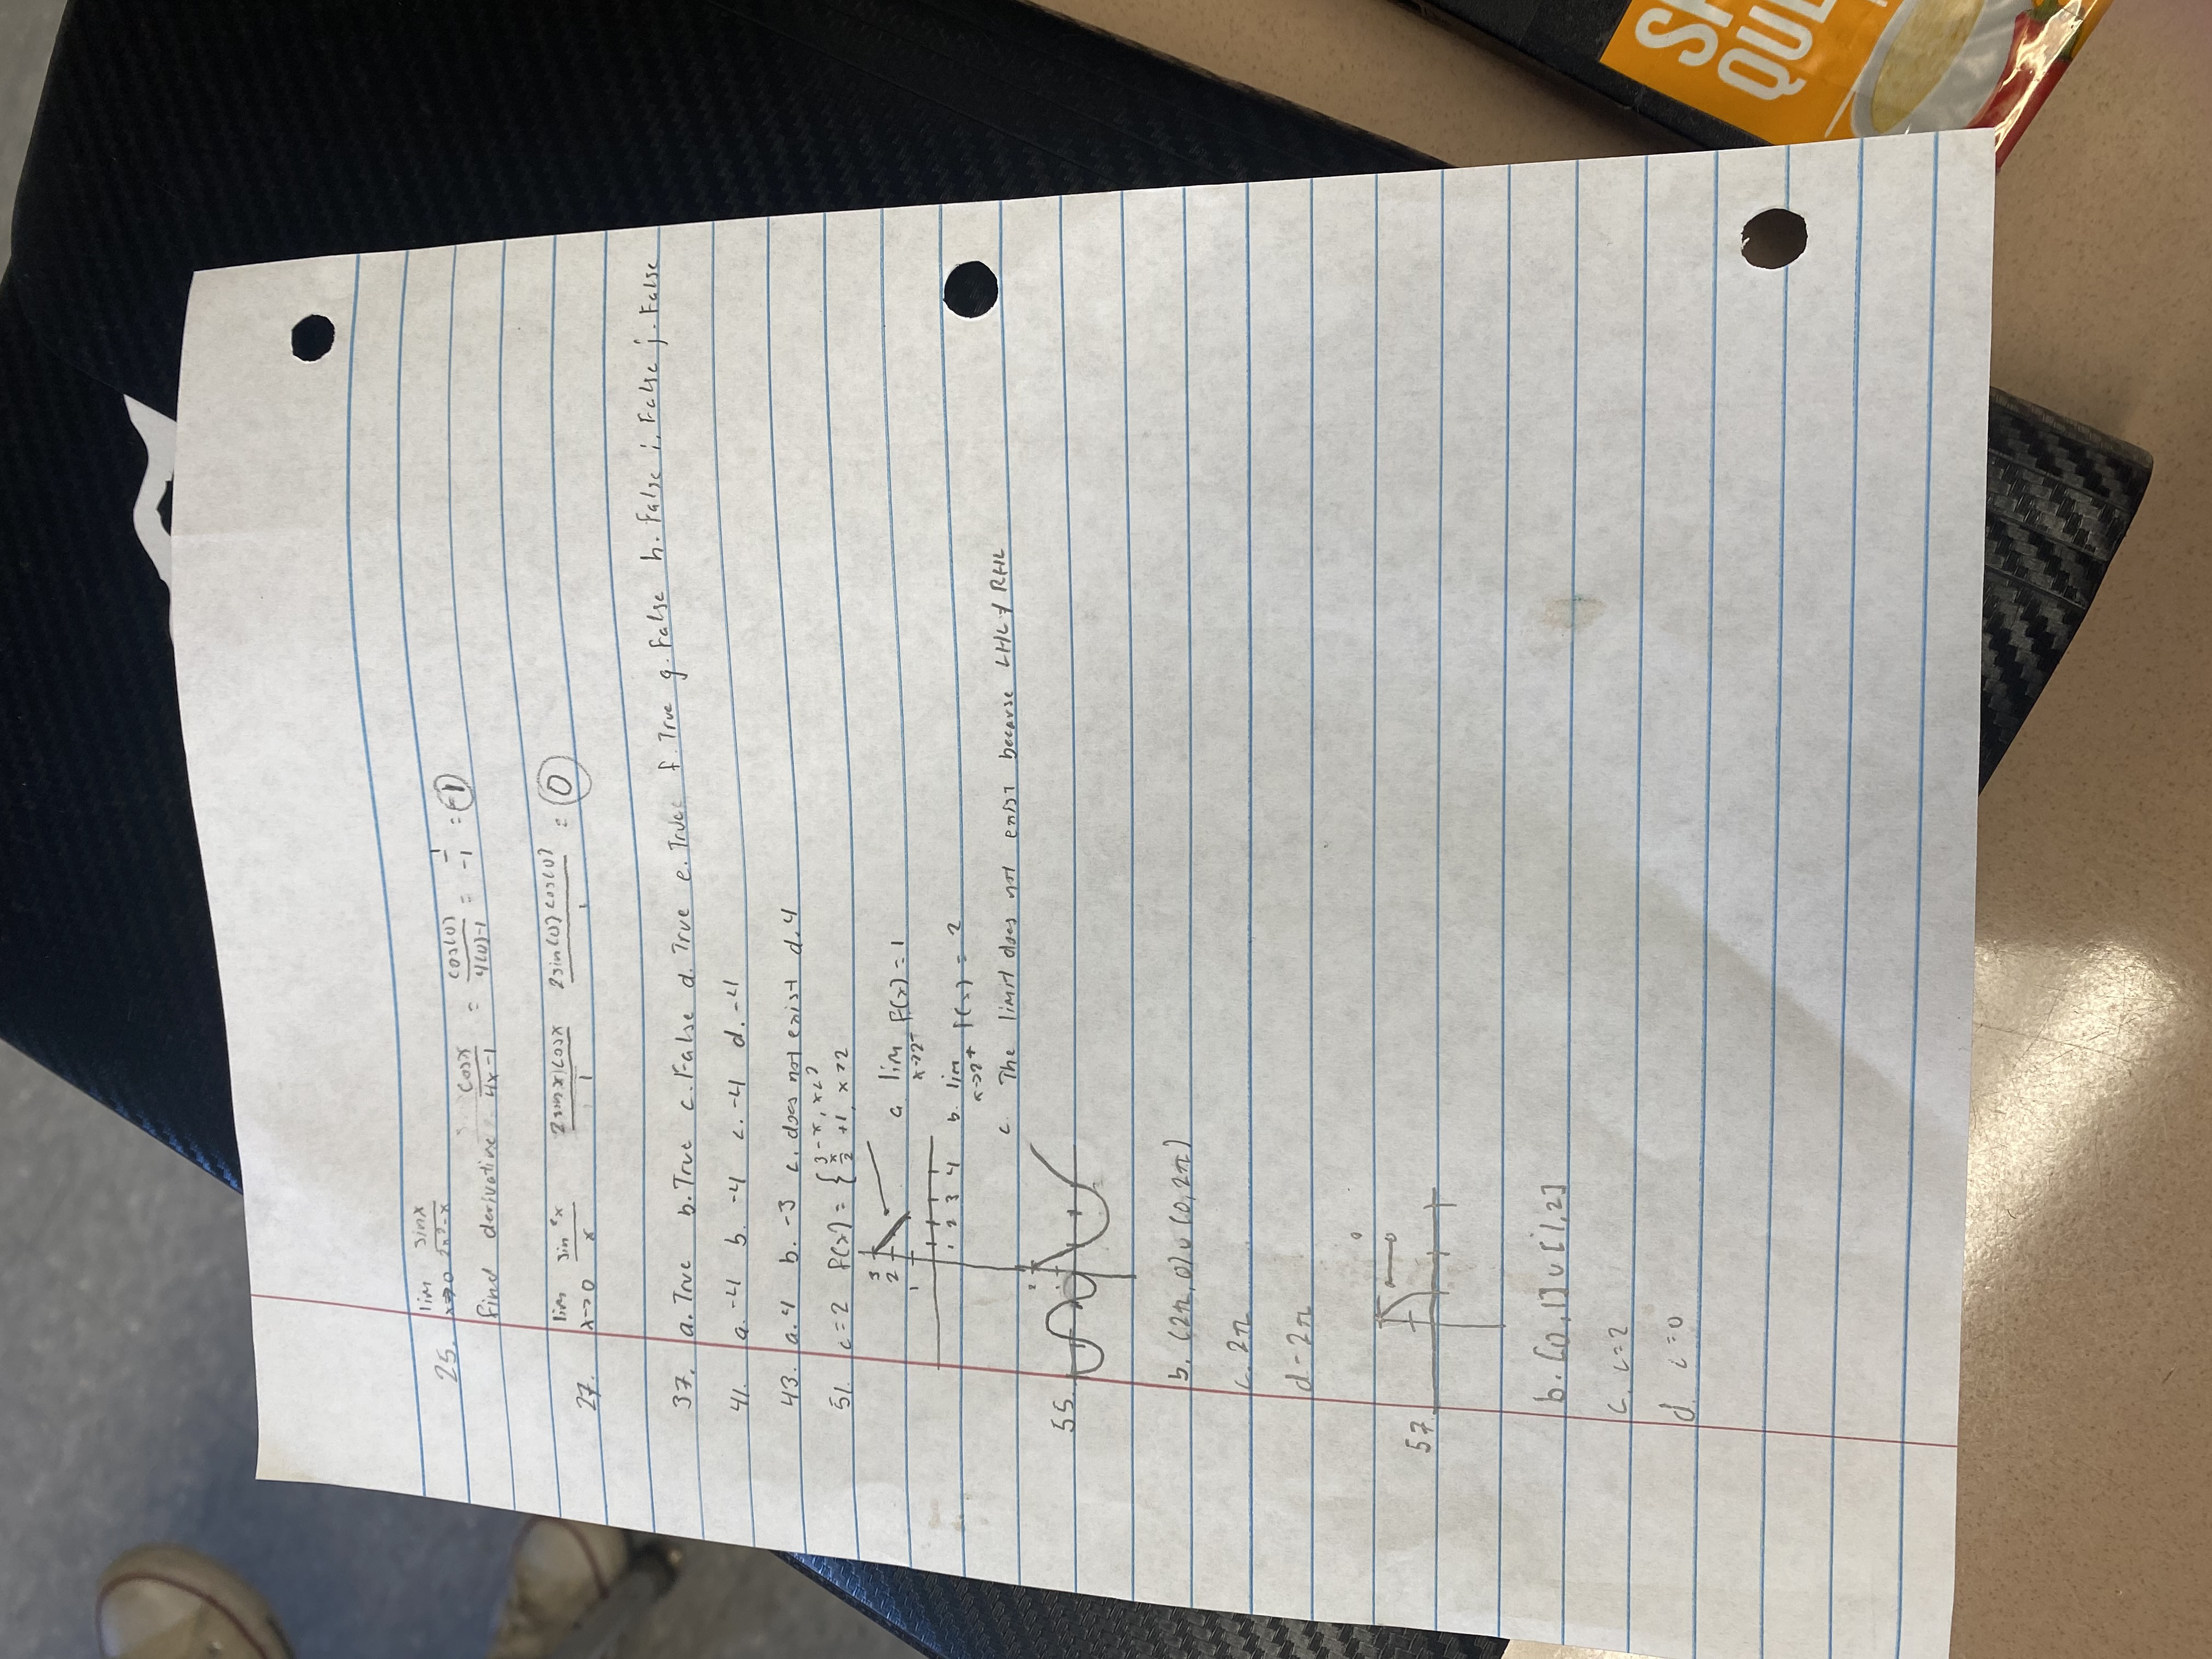 25. lim x→0 sinx / 2x²-x
find derivative cosx / 4x-1 = cos(0) / 4(0)-1 = 1 / -1 = -1
27. lim x→0 sin²x / x 2sinxcosx / 1 2sin(0)cos(0) / 1 = 0
37. a. True b. True c. False d. True e. True f. True g. False h. False i. False j. False
41. a. -4 b. -4 c. -4 d. -4
43. a. 4 b. -3 c. does not exist d. 4
51. c=2 f(x) = { 3-x, x<2
x/2 +1, x>2
3
2
1
1 2 3 4
a. lim x→2⁻ f(x) = 1
b. lim x→2⁺ f(x) = 2
c. The limit does not exist because LHL ≠ RHL
55.
2
b. (2π, 0) ∪ (0, 2π)
c. 2π
d - 2π
57.
b. [0,1] ∪ [1,2]
c. c=2
d. c=0